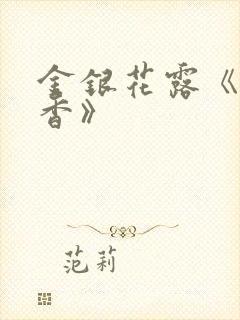 金银花露《
香》
范莉